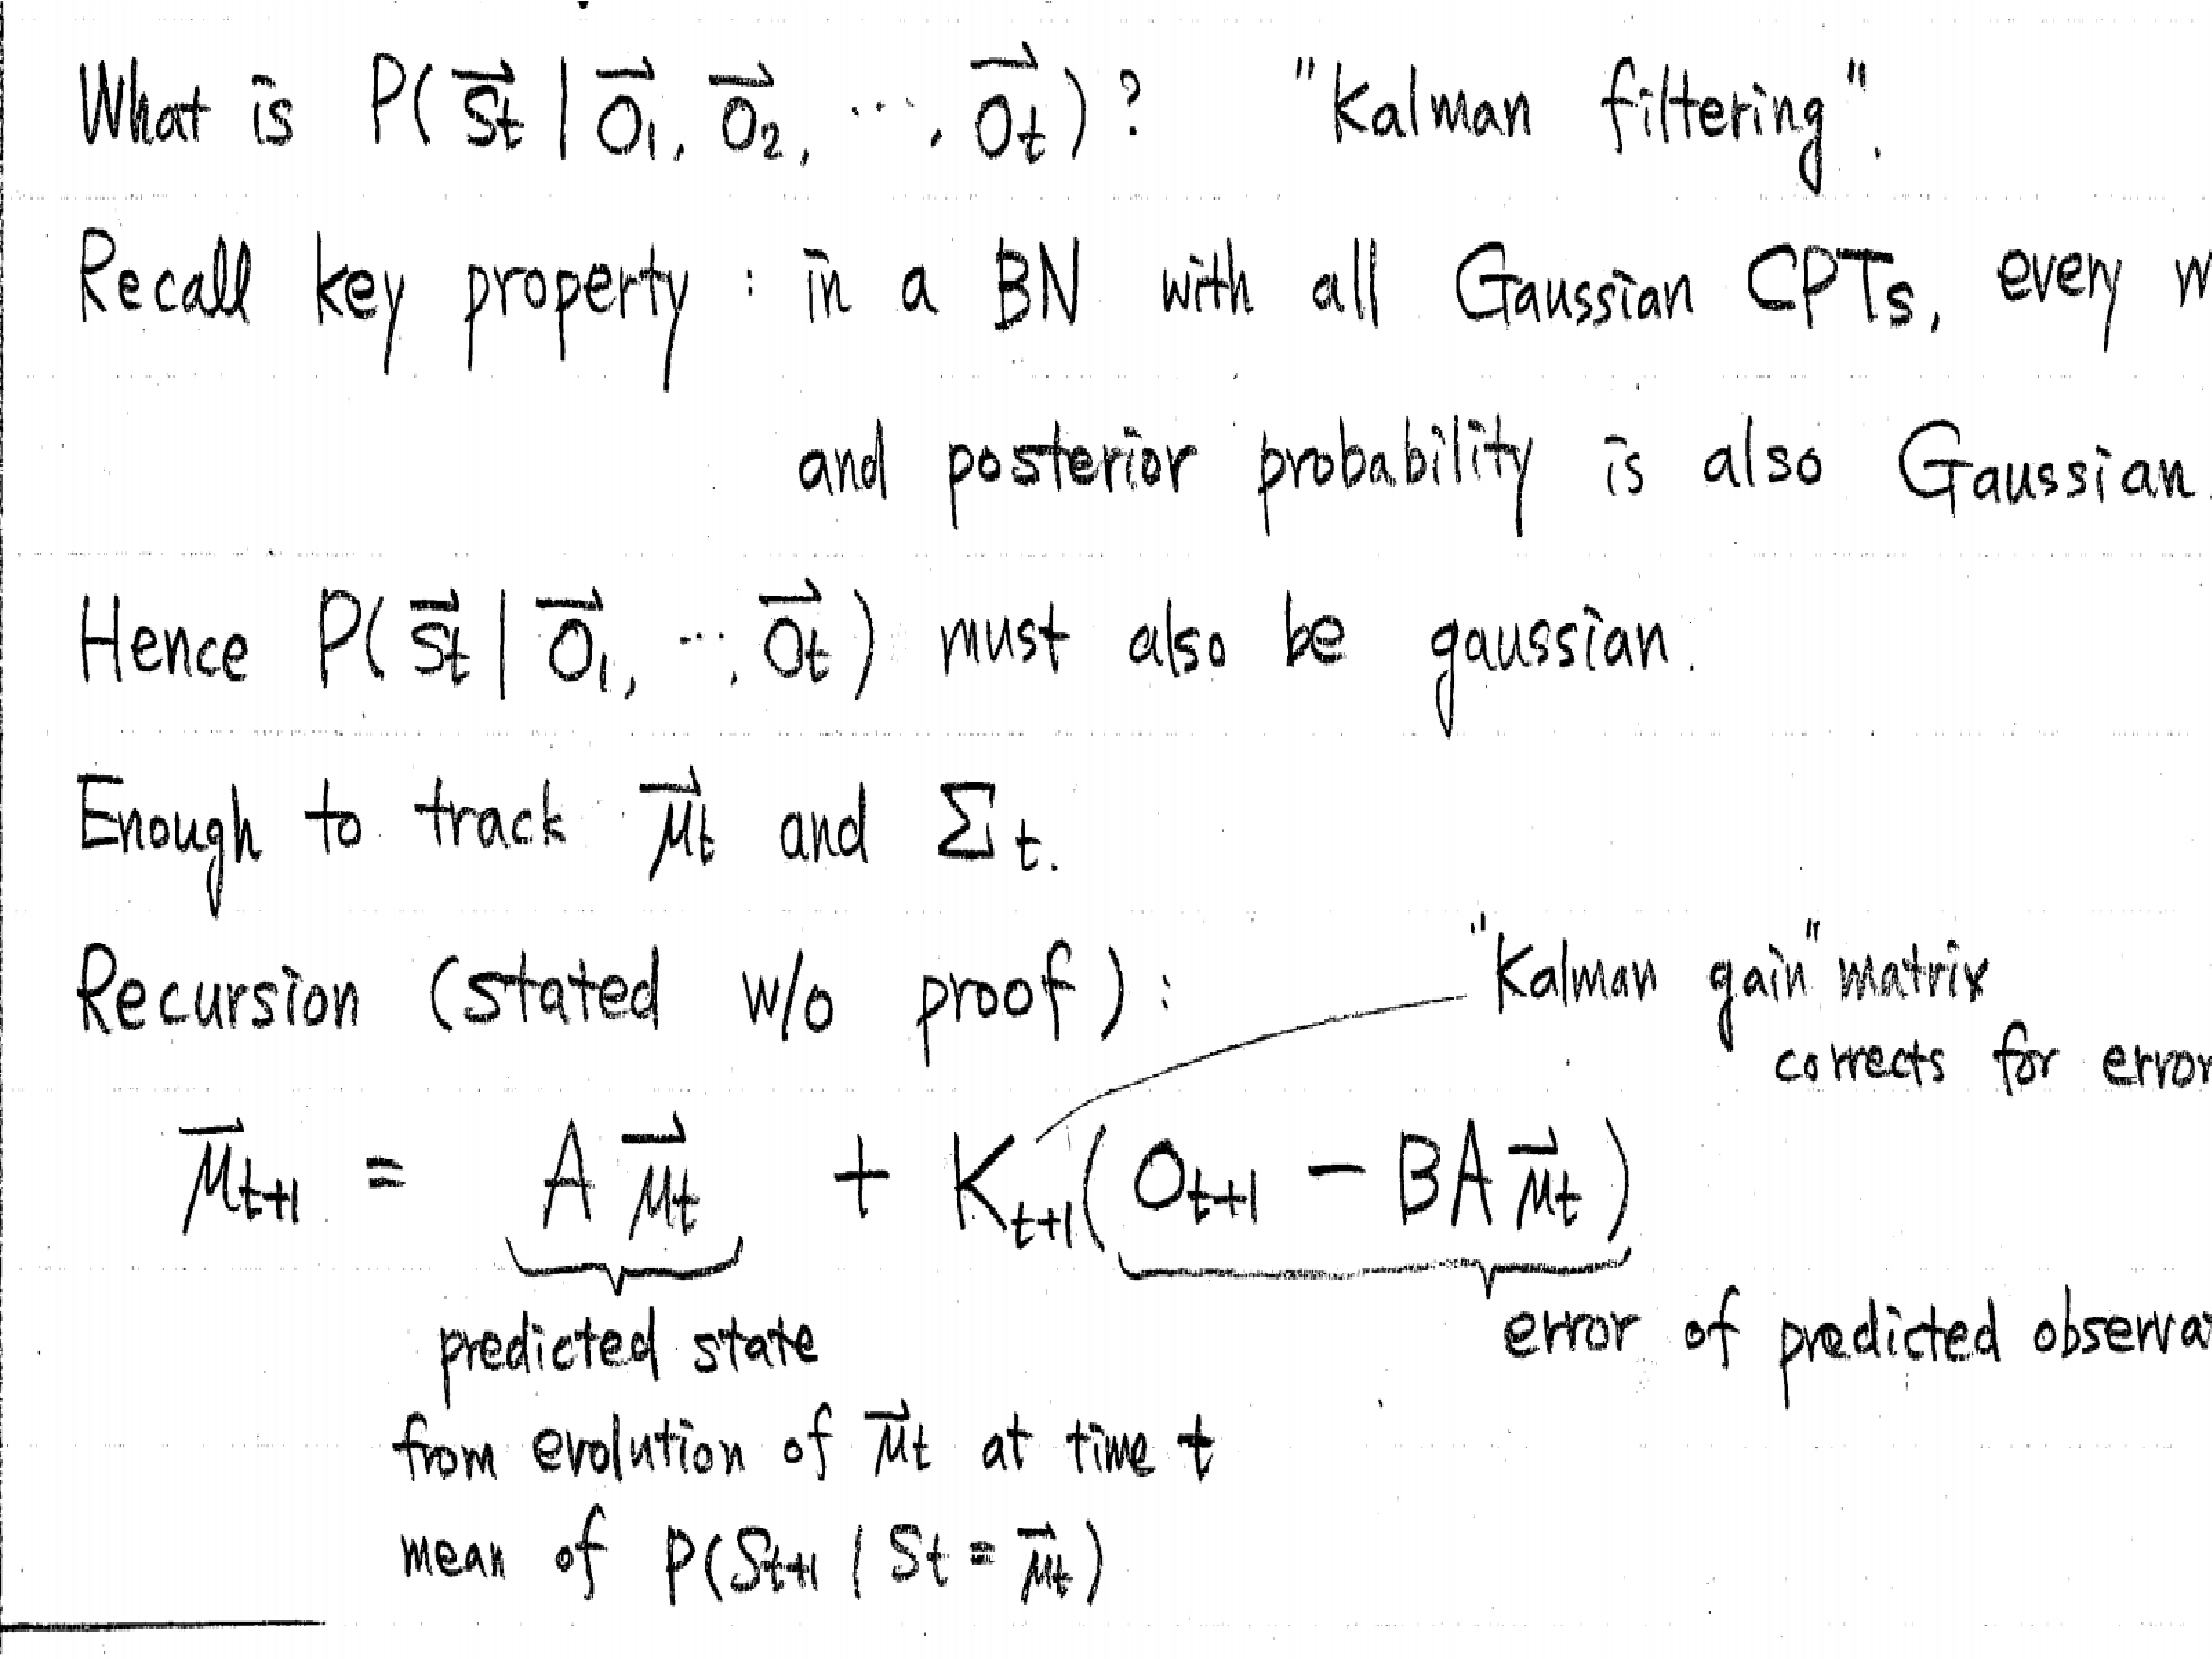 What is P( s⃗t | o⃗1, o⃗2, ..., o⃗t ) ? "Kalman filtering".
Recall key property : in a BN with all Gaussian CPTs, every
and posterior probability is also Gaussian.
Hence P( s⃗t | o⃗1, ..., o⃗t ) must also be gaussian.
Enough to track μ⃗t and Σt.
Recursion (stated w/o proof) : "Kalman gain" matrix
corrects for error
μ⃗t+1 = A μ⃗t + Kt+1( Ot+1 - BA μ⃗t )
predicted state error of predicted observa
from evolution of μ⃗t at time t
mean of P(St+1 | St = μ⃗t)